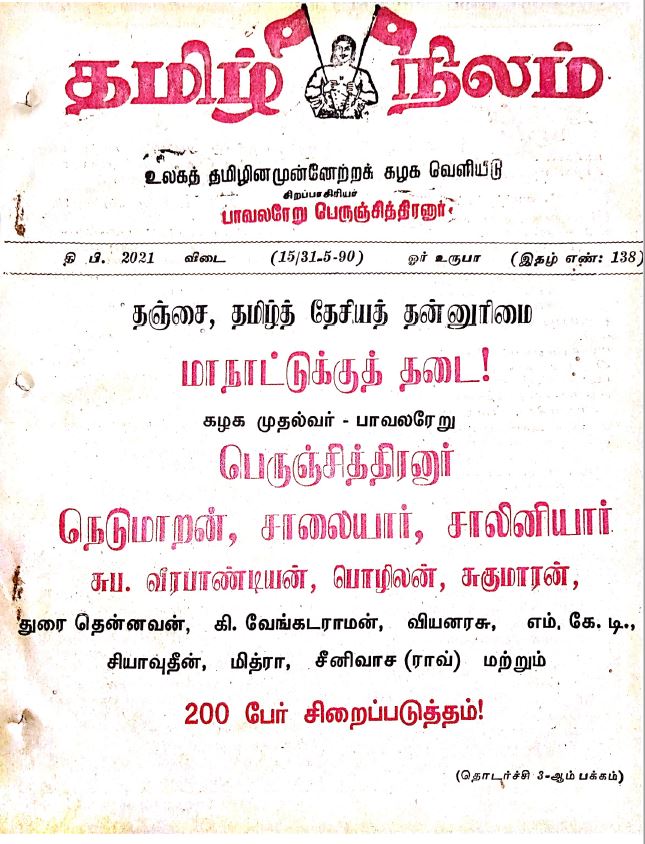 தமிழ் நிலம்
உலகத் தமிழினமுன்னேற்றக் கழக வெளியீடு
சிறப்பாசிரியர்
பாவலரேறு பெருஞ்சித்திரனார்
தி பி. 2021 விடை (15/31-5-90) ஓர் உருபா (இதழ் எண்: 138)
தஞ்சை, தமிழ்த் தேசியத் தன்னுரிமை
மாநாட்டுக்குத் தடை!
கழக முதல்வர் - பாவலரேறு
பெருஞ்சித்திரனார்
நெடுமாறன், சாலையார், சாலினியார்
சுப. வீரபாண்டியன், பொழிலன், சுகுமாரன்,
துரை தென்னவன், கி. வேங்கடராமன், வியனரசு, எம். கே. டி.,
சியாவுதீன், மித்ரா, சீனிவாச (ராவ்) மற்றும்
200 பேர் சிறைப்படுத்தம்!
(தொடர்ச்சி 3-ஆம் பக்கம்)